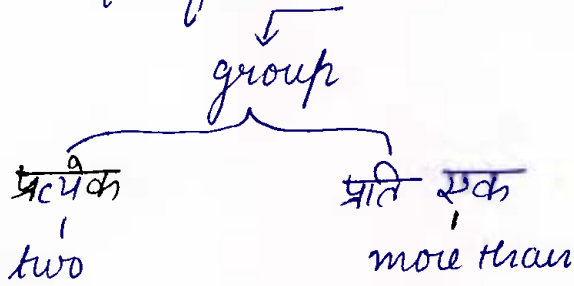 group
प्रत्येक प्रति एक
two more than